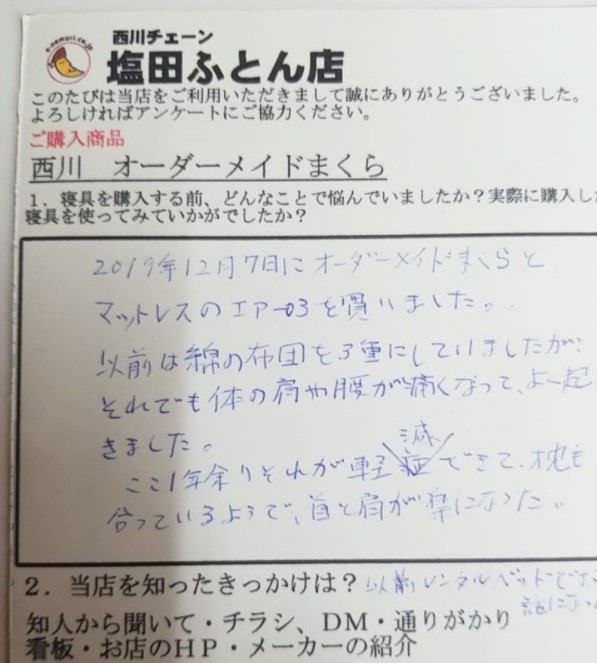 e-nemuri.co.jp
西川チェーン
塩田ふとん店
このたびは当店をご利用いただきまして誠にありがとうございました。
よろしければアンケートにご協力ください。
ご購入商品
西川　オーダーメイドまくら
1．寝具を購入する前、どんなことで悩んでいましたか？実際に購入し
寝具を使ってみていかがでしたか？
2019年12月7日にオーダーメイドまくらと
マットレスのエアー03を買いました。
以前は綿の布団を3重にしていましたが、
それでも体の肩や腰が痛くなって、よく起
きました。
減
ここ1年余りそれが軽症できて、枕も
合っているようで、首と肩が楽になった。
2．当店を知ったきっかけは？ 以前レンタルベッドで
知人から聞いて・チラシ、DM・通りがかり
看板・お店のHP・メーカーの紹介